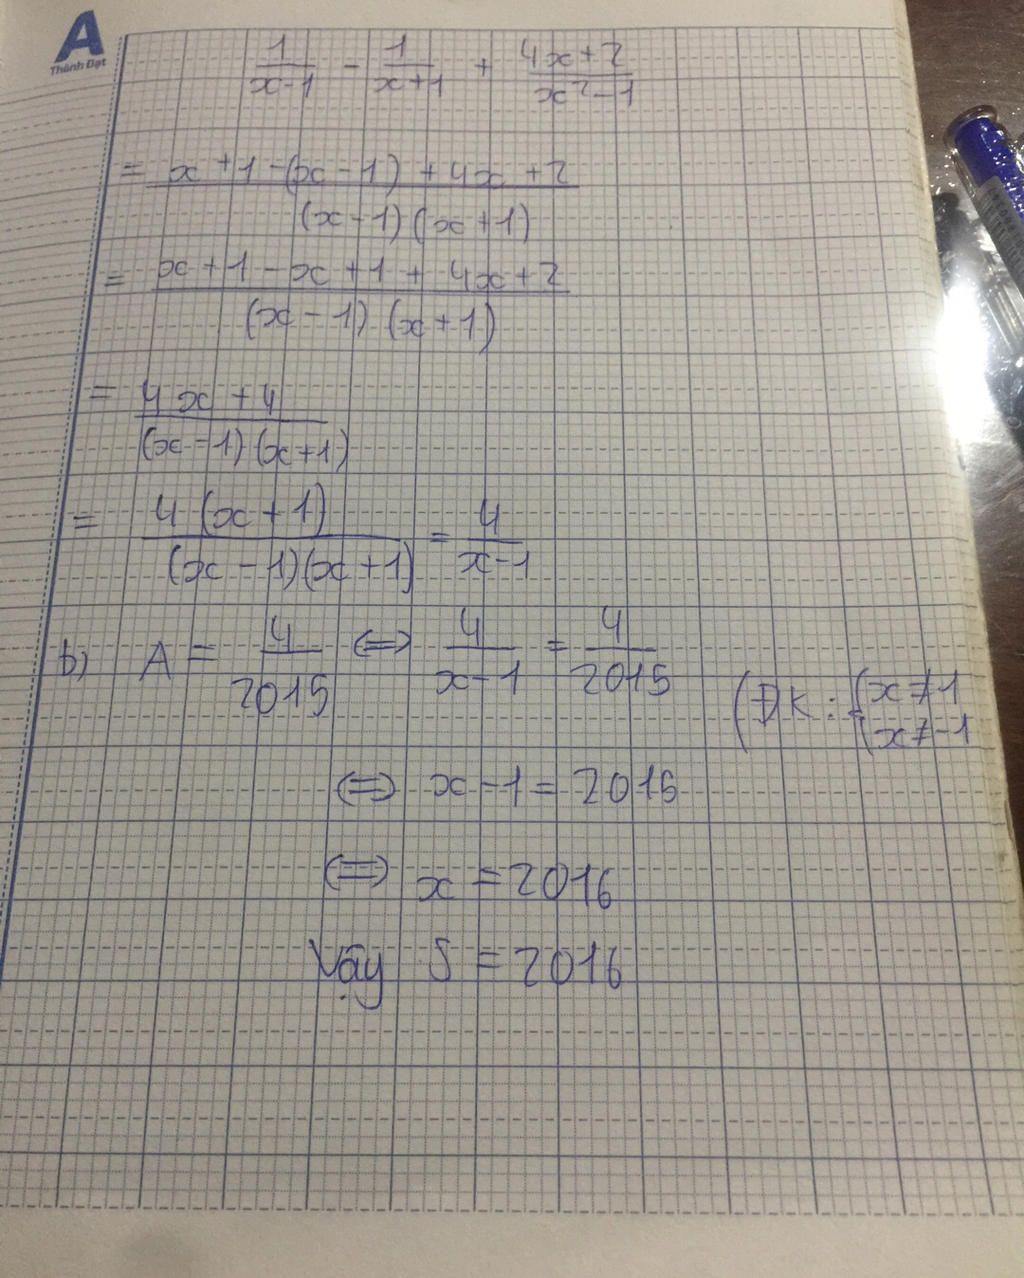 A
Thành Đạt
1/(x-1) - 1/(x+1) + (4x+2)/(x²-1)
= (x+1-(x-1)+4x+2)/((x-1)(x+1))
= (x+1-x+1+4x+2)/((x-1)(x+1))
= (4x+4)/((x-1)(x+1))
= 4(x+1)/((x-1)(x+1)) = 4/(x-1)
b) A = 4/2015 <=> 4/(x-1) = 4/2015 (ĐK: {x≠1
x≠-1
<=> x-1 = 2015
<=> x = 2016
Vậy S = 2016